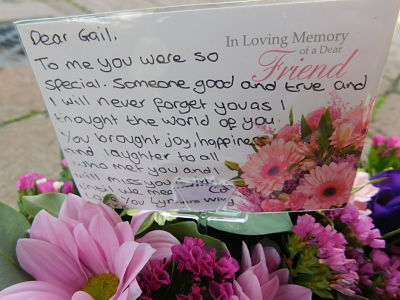 Dear Gail,
In Loving Memory
of a Dear
Friend
To me you were so
special. Someone good and true and
I will never forget you as I
thought the world of you.
You brought joy, happiness
and laughter to all
who met you and I
will miss you
until we meet
Love you Lyn